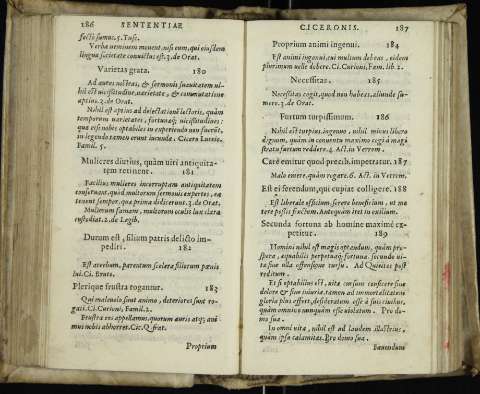 186 SENTENTIAE
fecti sumus. 5. Tusc.
Verba neminem mouent, nisi eum, qui eiusdem
lingua societate coniunctus est. 3. de Orat.
Varietas grata. 180
Ad aures nostras, & sermonis suauitatem ni-
hil est uicissitudine, uarietate, & commutatione
aptius. 3. de Orat.
Nihil est aptius ad delectationem lectoris, quàm
temporum uarietates, fortunaeq́; uicissitudines:
quae etsi nobis optabiles in experiendo non fuerũt,
in legendo tamen erunt iucundae. Cicero Lucceio.
Famil. 5.
Mulieres diutius, quàm uiri antiquita-
tem retinent. 181
Facilius mulieres incorruptam antiquitatem
conseruant, quòd multorum sermonis expertes, ea
tenent semper, quae prima didicerunt. 3. de Orat.
Mulierum famam, multorum oculis lux clara
custodiat. 2. de Legib.
Durum est, filium patris delicto im-
pediri. 182
Est acerbum, parentum scelera filiorum poenis
lui. Ci. Bruto.
Plerique frustra rogantur. 183
Qui maleuolo sunt animo, deteriores sunt ro-
gati. Ci. Curioni, Famil. 2.
Frustra eos appellamus, quorum aures atq; ani-
mus nobis abhorret. Cic. Q. frat.
Proprium
CICERONIS. 187
Proprium animi ingenui. 184
Est animi ingenui, cui multum debeas, eidem
plurimum uelle debere. Ci. Curioni, Fam. lib. 2.
Necessitas. 185
Necessitas cogit, quod non habeas, aliunde su-
mere. 3. de Orat.
Furtum turpissimum. 186
Nihil est turpius ingenuo, nihil minus libero
dignum, quàm in conuentu maximo cogi à magi
stratu furtum reddere. 4. Act. in Verrem.
Carè emitur quod precib. impetratur. 187
Malo emere, quàm rogare. 6. Act. in Verrem.
Est ei ferendum, qui cupiat colligere. 188
Est liberale officium, serere beneficium, ut me
tere possis fructum. Antequàm iret in exilium.
Secunda fortuna ab homine maximè ex-
petitur. 189
Homini nihil est magis optandum, quàm pro-
spera, aequabilis perpetuaq́; fortuna, secundae ui-
tae sine ulla offensione cursu. Ad Quirites post
reditum.
Et si optabilius est, uitae cursum conficere sine
dolore & sine iniuria, tamen ad immortalitatem
gloriae plus effert, desideratum esse à suis ciuibus,
quàm omnino nunquàm esse uiolatum. Pro do-
mo sua.
In omni uita, nihil est ad laudem illustrius,
quàm ipsa calamitas. Pro domo sua.